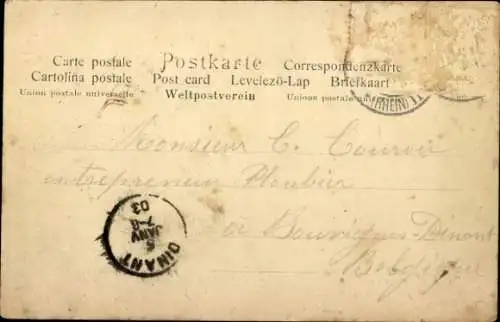 Carte postale Postkarte Correspondenzkarte
Cartolina postale Post card Levelező-Lap Briefkaart
Union postale universelle Weltpostverein Unions postale
(RHEIN)
Monsieur C.
entrepreneur
à Bouvignes-Dinant
Belgique
DINANT
5
JANV
7-8
03